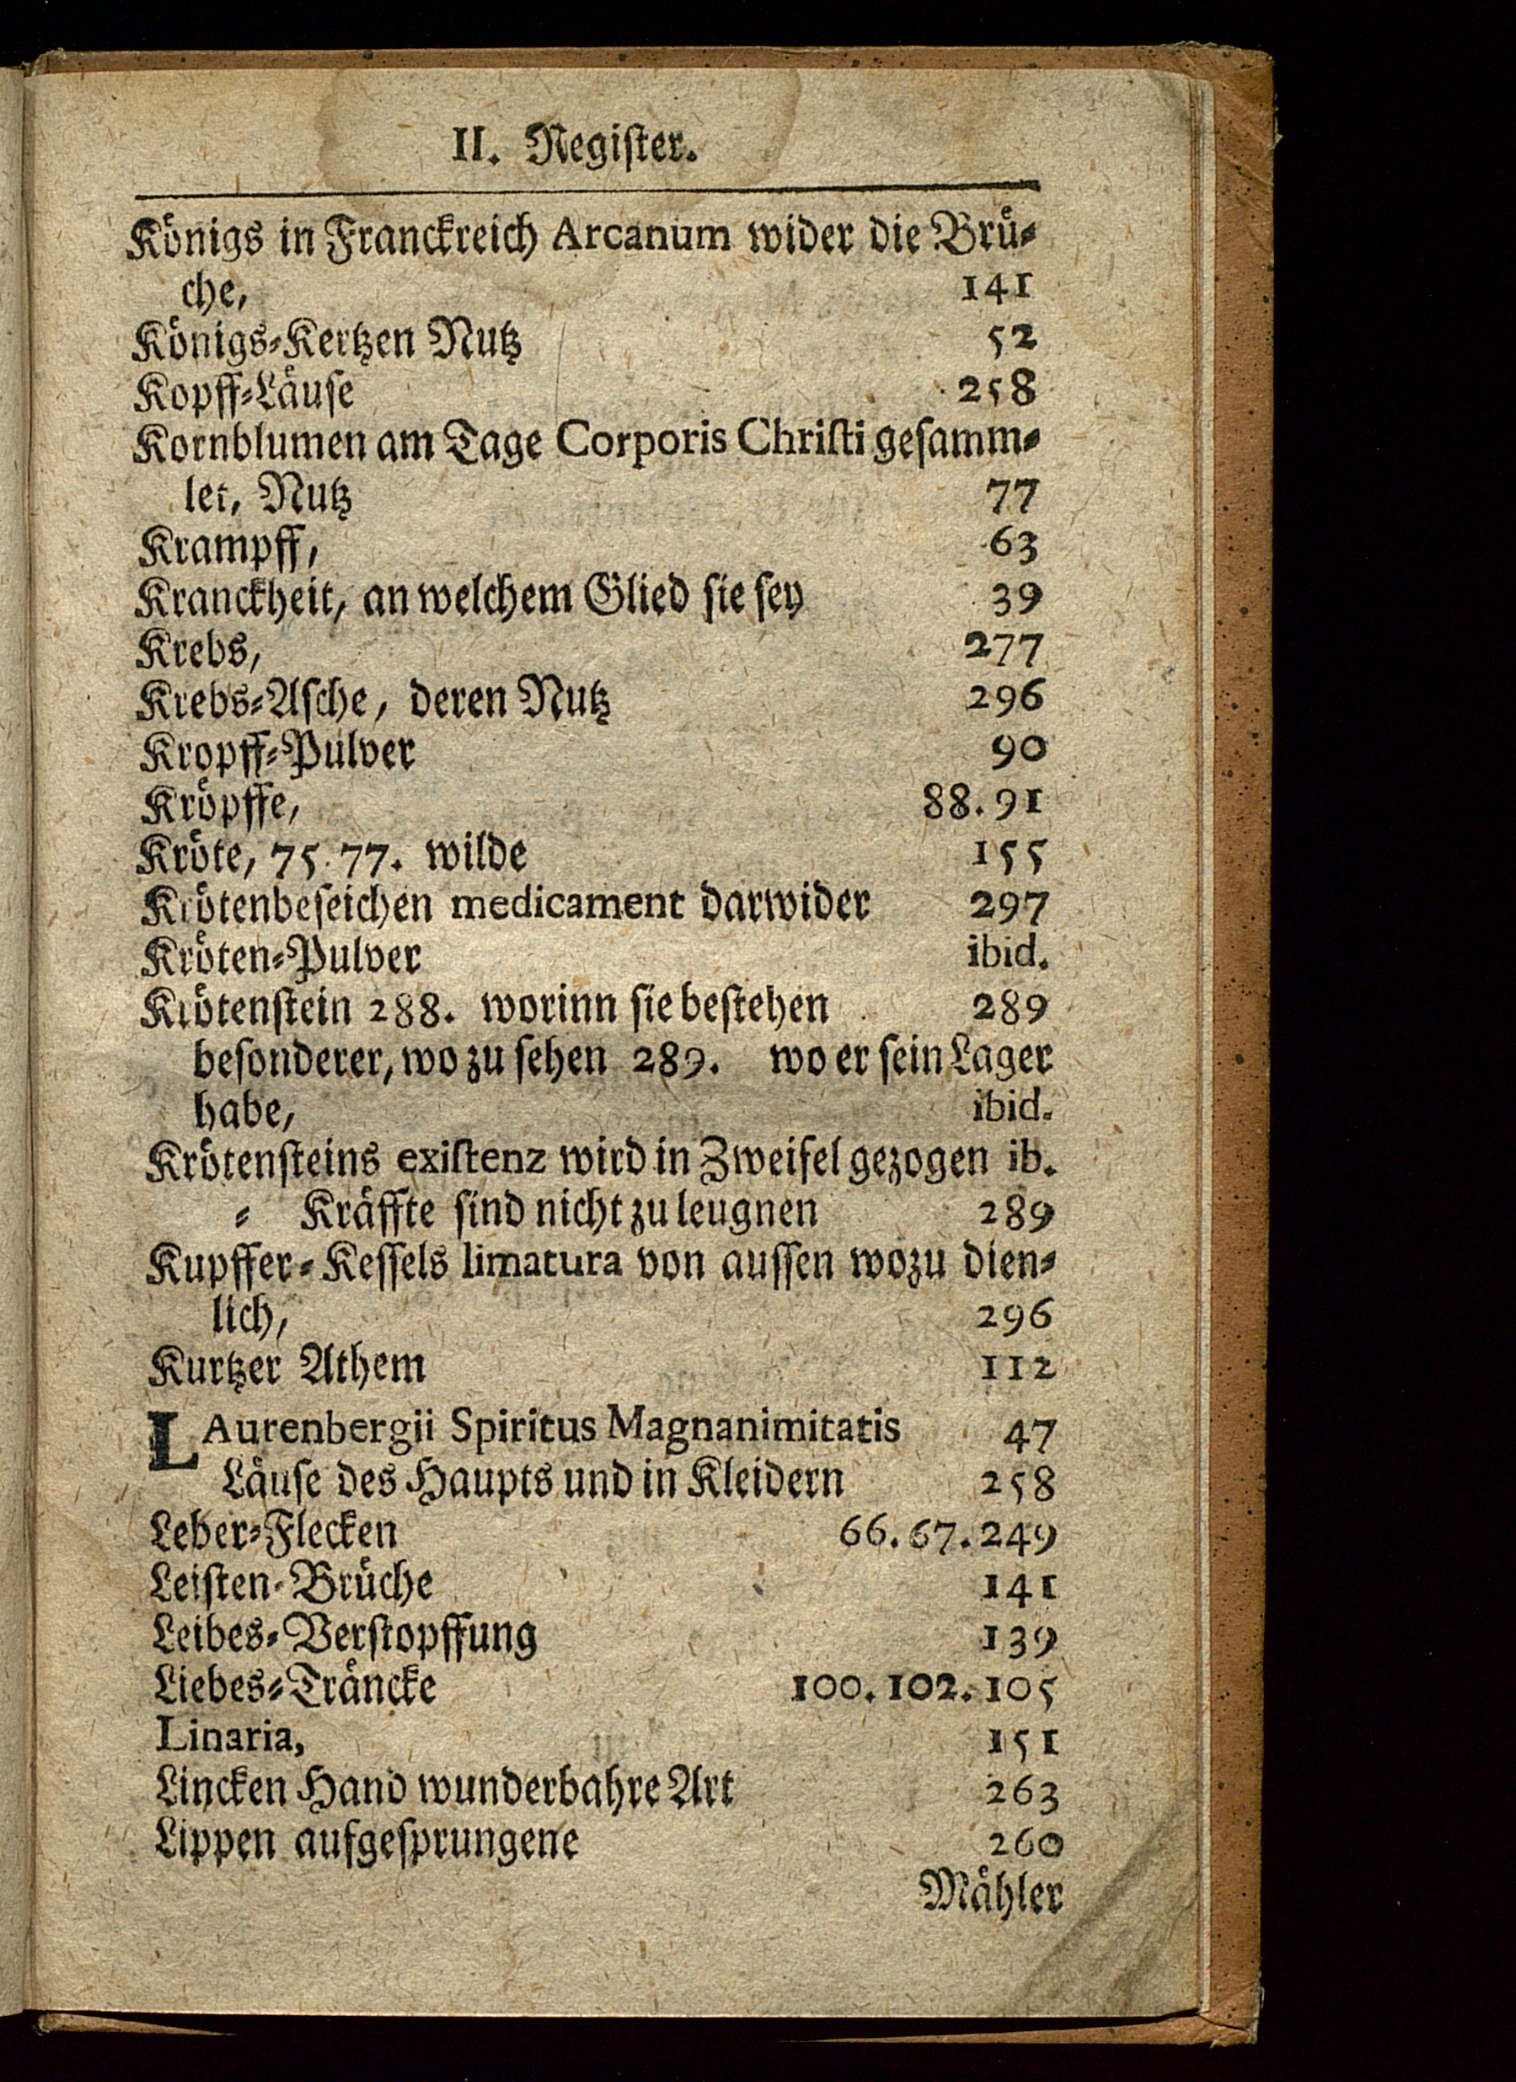 II. Register.
Königs in Franckreich Arcanum wider die Brü-
che, 141
Königs-Kertzen Nutz 52
Kopff-Läuse 258
Kornblumen am Tage Corporis Christi gesamm-
let, Nutz 77
Krampff, 63
Kranckheit, an welchem Glied sie sey 39
Krebs, 277
Krebs-Asche, deren Nutz 296
Kropff-Pulver 90
Kröpffe, 88. 91
Kröte, 75. 77. wilde 155
Krötenbeseichen medicament darwider 297
Kröten-Pulver ibid.
Krötenstein 288. worinn sie bestehen 289
besonderer, wo zu sehen 289. wo er sein Lager
habe, ibid.
Krötensteins existenz wird in Zweifel gezogen ib.
- Kräffte sind nicht zu leugnen 289
Kupffer-Kessels limatura von aussen wozu dien-
lich, 296
Kurtzer Athem 112
LAurenbergii Spiritus Magnanimitatis 47
Läuse des Haupts und in Kleidern 258
Leber-Flecken 66. 67. 249
Leisten-Brüche 141
Leibes-Verstopffung 139
Liebes-Träncke 100. 102. 105
Linaria, 151
Lincken Hand wunderbahre Art 263
Lippen aufgesprungene 260
Mähler